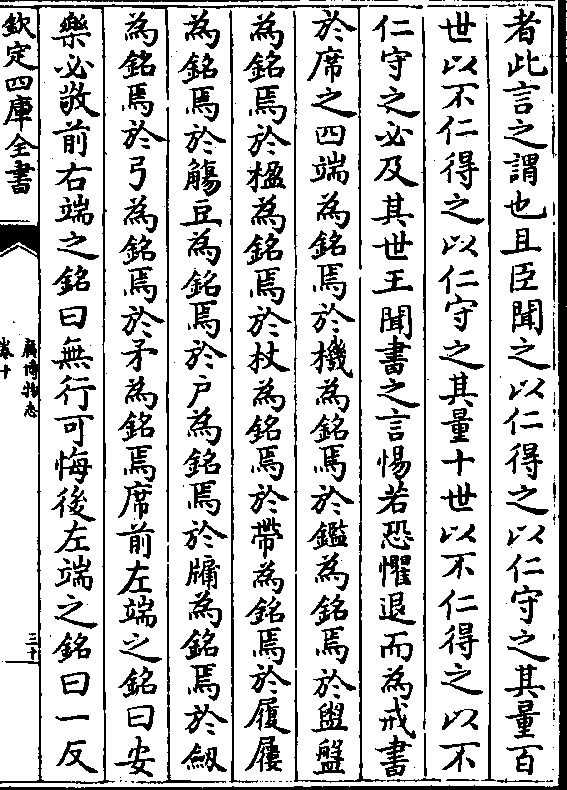 者此言之謂也且臣聞之以仁得之以仁守之其量百
世以不仁得之以仁守之其量十世以不仁得之以不
仁守之必及其世王聞書之言惕若恐懼退而為戒書
於席之四端為銘焉於機為銘焉於鑑為銘焉於盥盤
為銘焉於楹為銘焉於杖為銘焉於帶為銘焉於履屨
為銘焉於觴豆為銘焉於户為銘焉於牖為銘焉於劔
為銘焉於弓為銘焉於矛為銘焉席前左端之銘曰安
樂必敬前右端之銘曰無行可悔後左端之銘曰一反
欽定四庫全書
廣博物志
卷十
三十